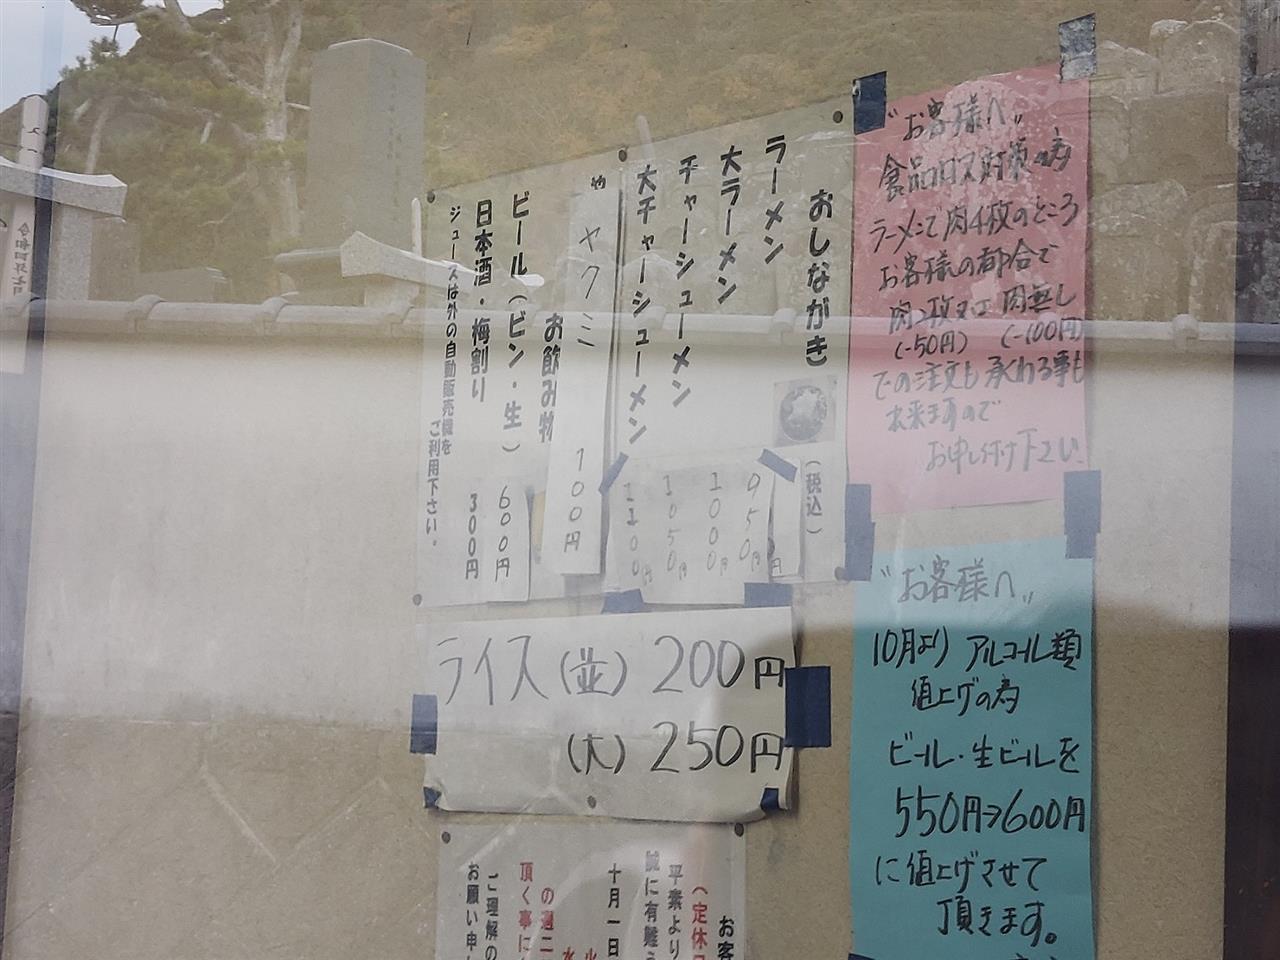 おしながき
(税込)
ラーメン 950円
大ラーメン 1000円
チャーシューメン 1050円
大チャーシューメン 1100円
ヤクミ 100円
お飲み物
ビール(ビン・生) 600円
日本酒・梅割り 300円
ジュースは外の自動販売機を
ご利用下さい。
ライス(並) 200円
(大) 250円
〝お客様へ〟
食品ロス対策の為
ラーメンで肉4枚のところ
お客様の都合で
肉2枚又は 肉無し
(-50円) (-100円)
での注文も承わる事も
出来ますので
お申し付け下さい
〝お客様へ〟
10月より アルコール類
値上げの為
ビール・生ビールを
550円→600円
に値上げさせて
頂きます。
お客
(定休
平素より
誠に有難う
十月一日
火
水
の週二
頂く事に
ご理解の
お願い申し